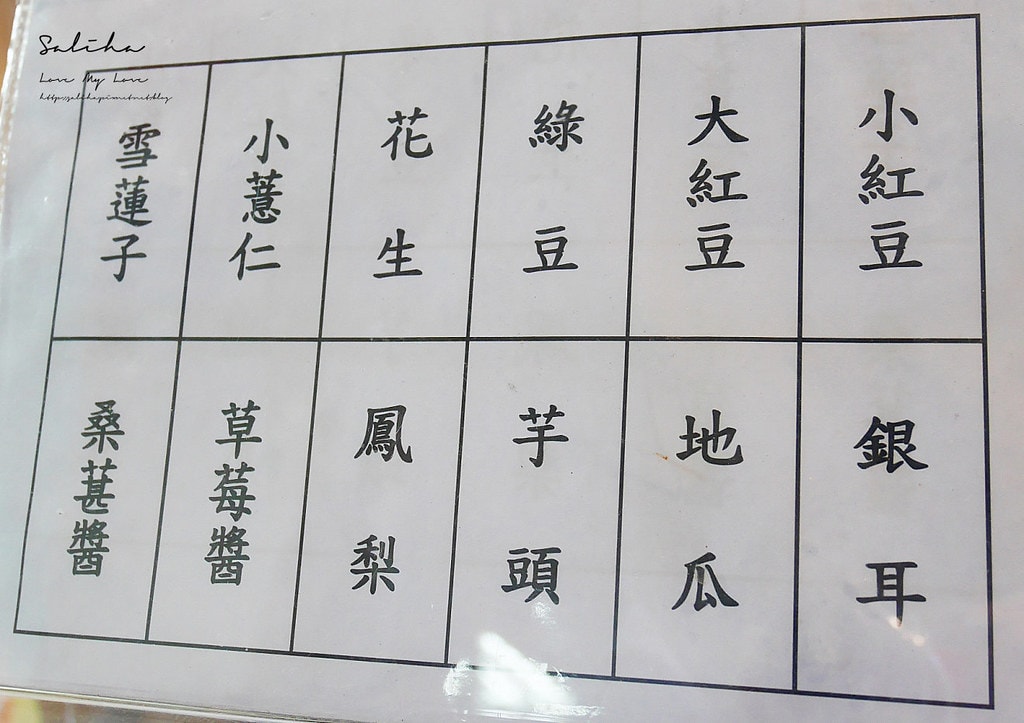 Saliha
Love My Love
小紅豆
大紅豆
綠豆
花生
小薏仁
雪蓮子
銀耳
地瓜
芋頭
鳳梨
草莓醬
桑葚醬